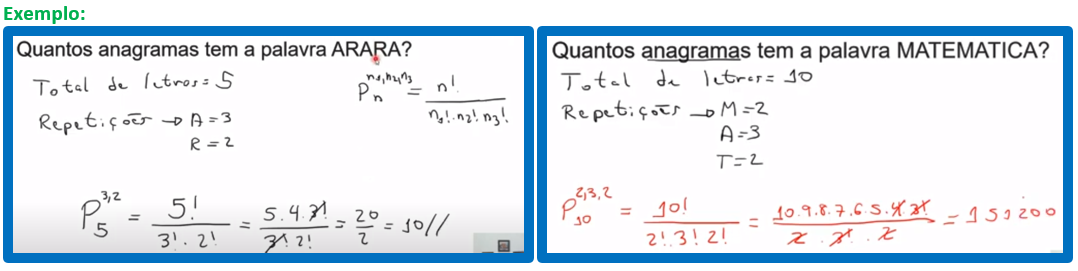 Exemplo:
Quantos anagramas tem a palavra ARARA?
Total de letras = 5
P_n^{n1,n2,n3} = n! / (n1!·n2!·n3!)
Repetições → A=3
R=2
P_5^{3,2} = 5! / (3!·2!) = 5.4.3! / (3! 2!) = 20/2 = 10//
Quantos anagramas tem a palavra MATEMATICA?
Total de letras = 10
Repetições → M=2
A=3
T=2
P_10^{2,3,2} = 10! / (2!·3!2!) = 10.9.8.7.6.5.4.3! / (2·3!·2) = 151200